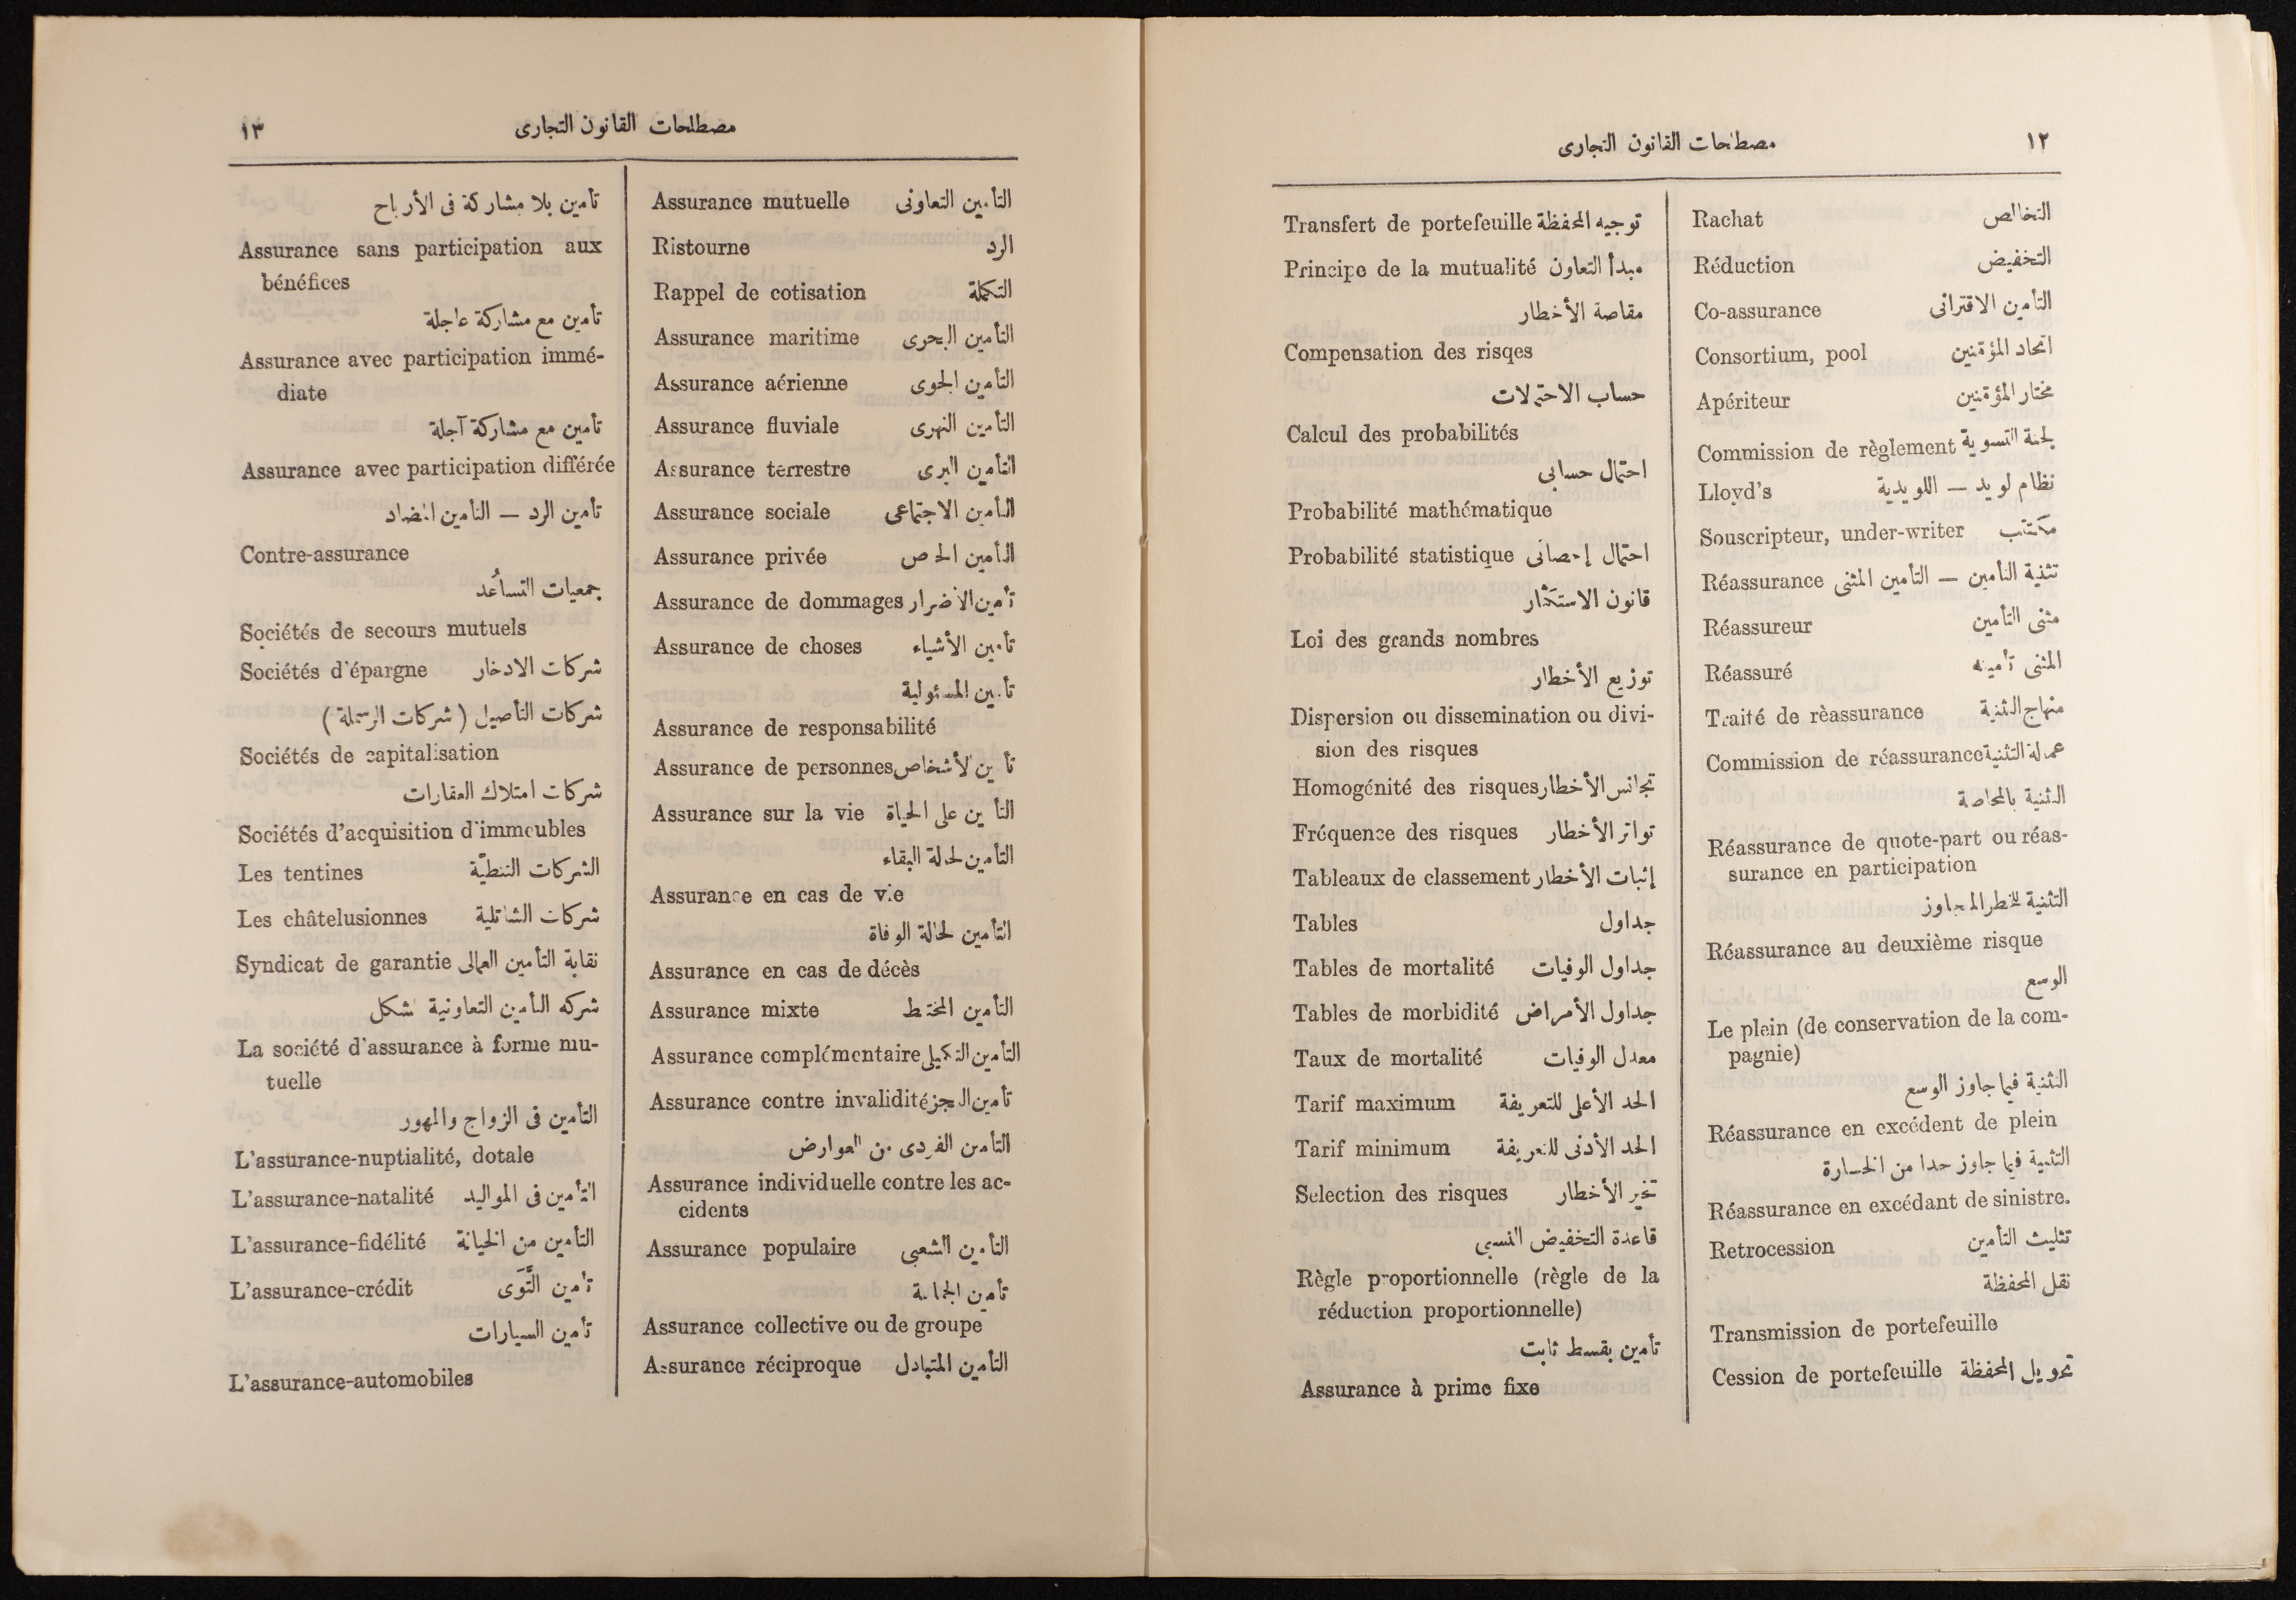 ١٢
مصطلحات القانون التجارى
Rachat التخالص
Réduction التخفيض
Co-assurance التأمين الاقترانى
Consortium, pool اتحاد المؤمنين
Apériteur مختار المؤمنين
Commission de règlement لجنة التسوية
Lloyd's نظام لويد — اللويدية
Souscripteur, under-writer مكتتب
Réassurance تثنية التأمين — التأمين المثنى
Réassureur مثنى التأمين
Réassuré المثنى تأمينه
Traité de rèassurance منهاج التثنية
Commission de réassurance عمالة التثنية
التثنية بالمحاصة
Réassurance de quote-part ou réas-
surance en participation
التثنية للخطر المجاوز
Réassurance au deuxième risque
الوسع
Le plein (de conservation de la com-
pagnie)
التثنية فيما جاوز الوسع
Réassurance en excédent de plein
التثنية فيما جاوز حدا من الخسارة
Réassurance en excédant de sinistre.
Retrocession تثليث التأمين
نقل المحفظة
Transmission de portefeuille
Cession de portefeuille تحويل المحفظة
Transfert de portefeuille توجيه المحفظة
Principe de la mutualité مبدأ التعاون
مقاصة الأخطار
Compensation des risqes
حساب الاحتمالات
Calcul des probabilités
احتمال حسابى
Probabilité mathématique
Probabilité statistique احتمال إحصائى
قانون الاستكثار
Loi des grands nombres
توزيع الأخطار
Dispersion ou dissemination ou divi-
sion des risques
Homogénité des risques تجانس الأخطار
Fréquence des risques تواتر الأخطار
Tableaux de classement إثبات الأخطار
Tables جداول
Tables de mortalité جداول الوفيات
Tables de morbidité جداول الأمراض
Taux de mortalité معدل الوفيات
Tarif maximum الحد الأعلى للتعريفة
Tarif minimum الحد الأدنى للتعريفة
Selection des risques تخير الأخطار
قاعدة التخفيض النسبى
Règle proportionnelle (règle de la
réduction proportionnelle)
تأمين بقسط ثابت
Assurance à prime fixe
مصطلحات القانون التجارى
١٣
Assurance mutuelle التأمين التعاونى
Ristourne الرد
Rappel de cotisation التكملة
Assurance maritime التأمين البحرى
Assurance aérienne التأمين الجوى
Assurance fluviale التأمين النهرى
Assurance terrestre التأمين البرى
Assurance sociale التأمين الاجتماعى
Assurance privée التأمين الخاص
Assurance de dommages تأمين الأضرار
Assurance de choses تأمين الأشياء
تأمين المسئولية
Assurance de responsabilité
Assurance de personnes تأمين الأشخاص
Assurance sur la vie التأمين على الحياة
التأمين لحالة البقاء
Assurance en cas de vie
التأمين لحالة الوفاة
Assurance en cas de décès
Assurance mixte التأمين المختلط
Assurance complémentaire التأمين التكميلى
Assurance contre invalidité تأمين العجز
التأمين الفردى من العوارض
Assurance individuelle contre les ac-
cidents
Assurance populaire التأمين الشعبى
تأمين الجماعة
Assurance collective ou de groupe
Assurance réciproque التأمين المتبادل
تأمين بلا مشاركة فى الأرباح
Assurance sans participation aux
bénéfices
تأمين مع مشاركة عاجلة
Assurance avec participation immé-
diate
تأمين مع مشاركة آجلة
Assurance avec participation différée
تأمين الرد — التأمين المضاد
Contre-assurance
جمعيات التساعُد
Sociétés de secours mutuels
Sociétés d'épargne شركات الادخار
شركات التأصيل ( شركات الرسملة )
Sociétés de capitalisation
شركات امتلاك العقارات
Sociétés d'acquisition d'immeubles
Les tentines الشركات التنطيّة
Les châtelusionnes شركات الشاتلية
Syndicat de garantie نقابة التأمين العمالى
شركه التأمين التعاونية شكل
La société d'assurance à forme mu-
tuelle
التأمين فى الزواج والمهور
L'assurance-nuptialité, dotale
L'assurance-natalité التأمين فى المواليد
L'assurance-fidélité التأمين من الخيانة
L'assurance-crédit تأمين التَّوَى
تأمين السيارات
L'assurance-automobiles